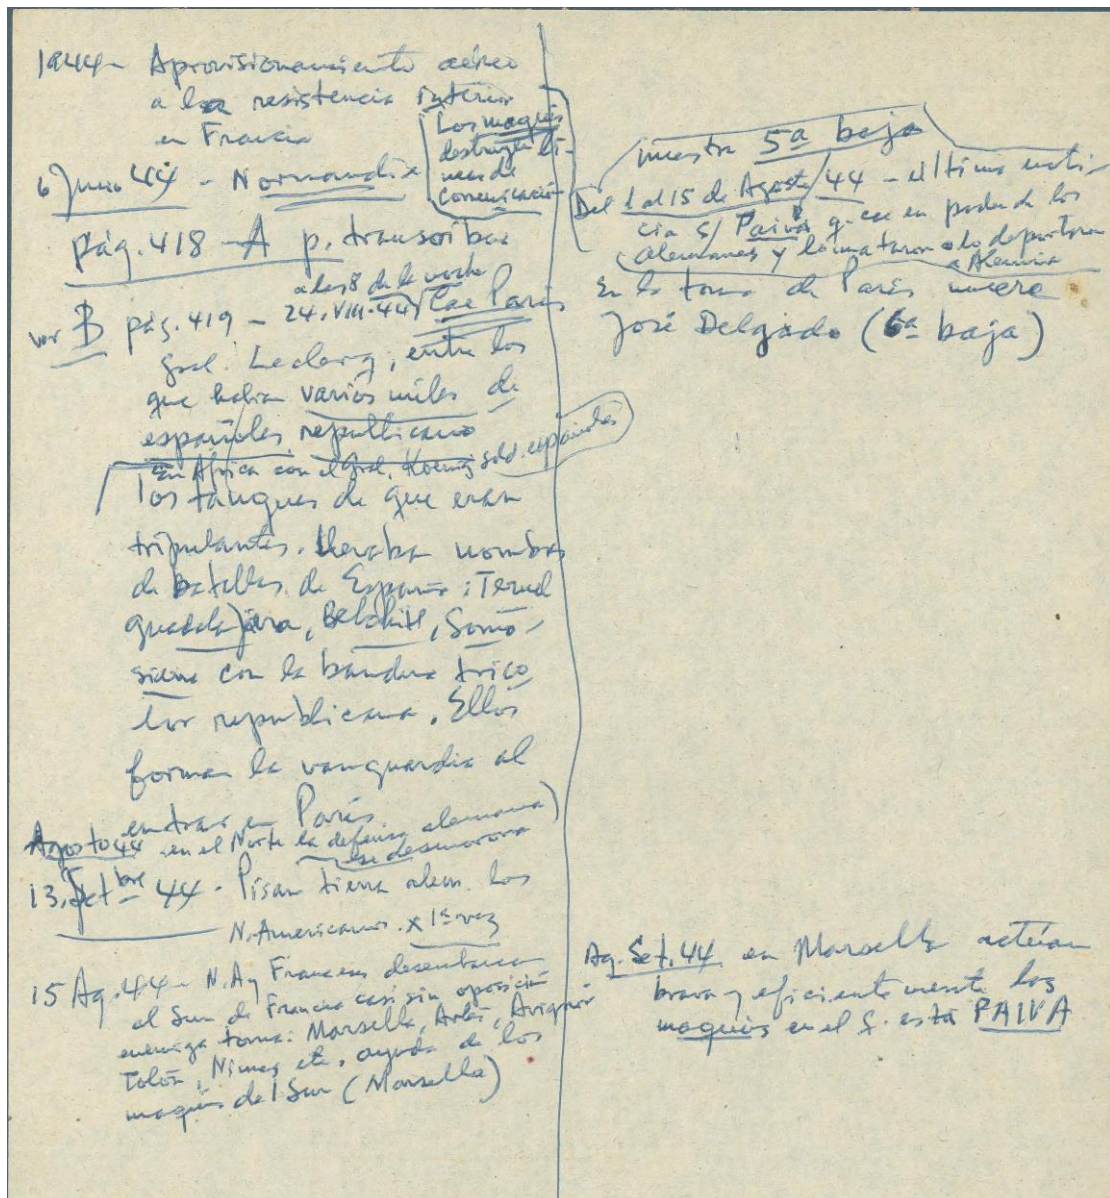 1944 - Aprovisionamiento aéreo
a la resistencia interior
en Francia
Los maquis
destruyen lí-
neas de
comunicación
6 Junio 44 - Normandía
pág. 418 - A p. transcribir
a las 8 de la noche
ver B pág. 419 - 24.VIII.44) Cae París
Gral. Leclerq, entre los
que habían varios miles de
españoles republicano
En Africa con el Gral. Koenig sold. españoles
los tanques de que eran
tripulantes. llevaban nombres
de batallas de España: Teruel
guadalajara, Belchite, Somo-
sierra con la bandera trico
lor republicana. Ellos
forman la vanguardia al
entrar en París.
Agosto 44 en el Norte la defensa alemana)
se desmorona
13. Setbre 44 - Pisan tierra alem. los
N. Americanos. x 1ª vez
15 Ag. 44 - N.A y Franceses desembarcan
al Sur de Francia casi sin oposición
enemiga toma: Marsella, Arlés, Avignón
Tolón, Nimes etc, ayuda de los
maquis del Sur (Marsella)
nuestra 5ª baja
Del 1 al 15 de Agosto/44 - última noti-
cia s/ Paiva q. cae en poder de los
alemanes y lo mataron o lo deportaron
a Alemania
En la toma de París muere
José Delgado (6ª baja)
Ag. Set. 44 en Marsella actúan
brava y eficientemente los
maquis en el q. está PAIVA